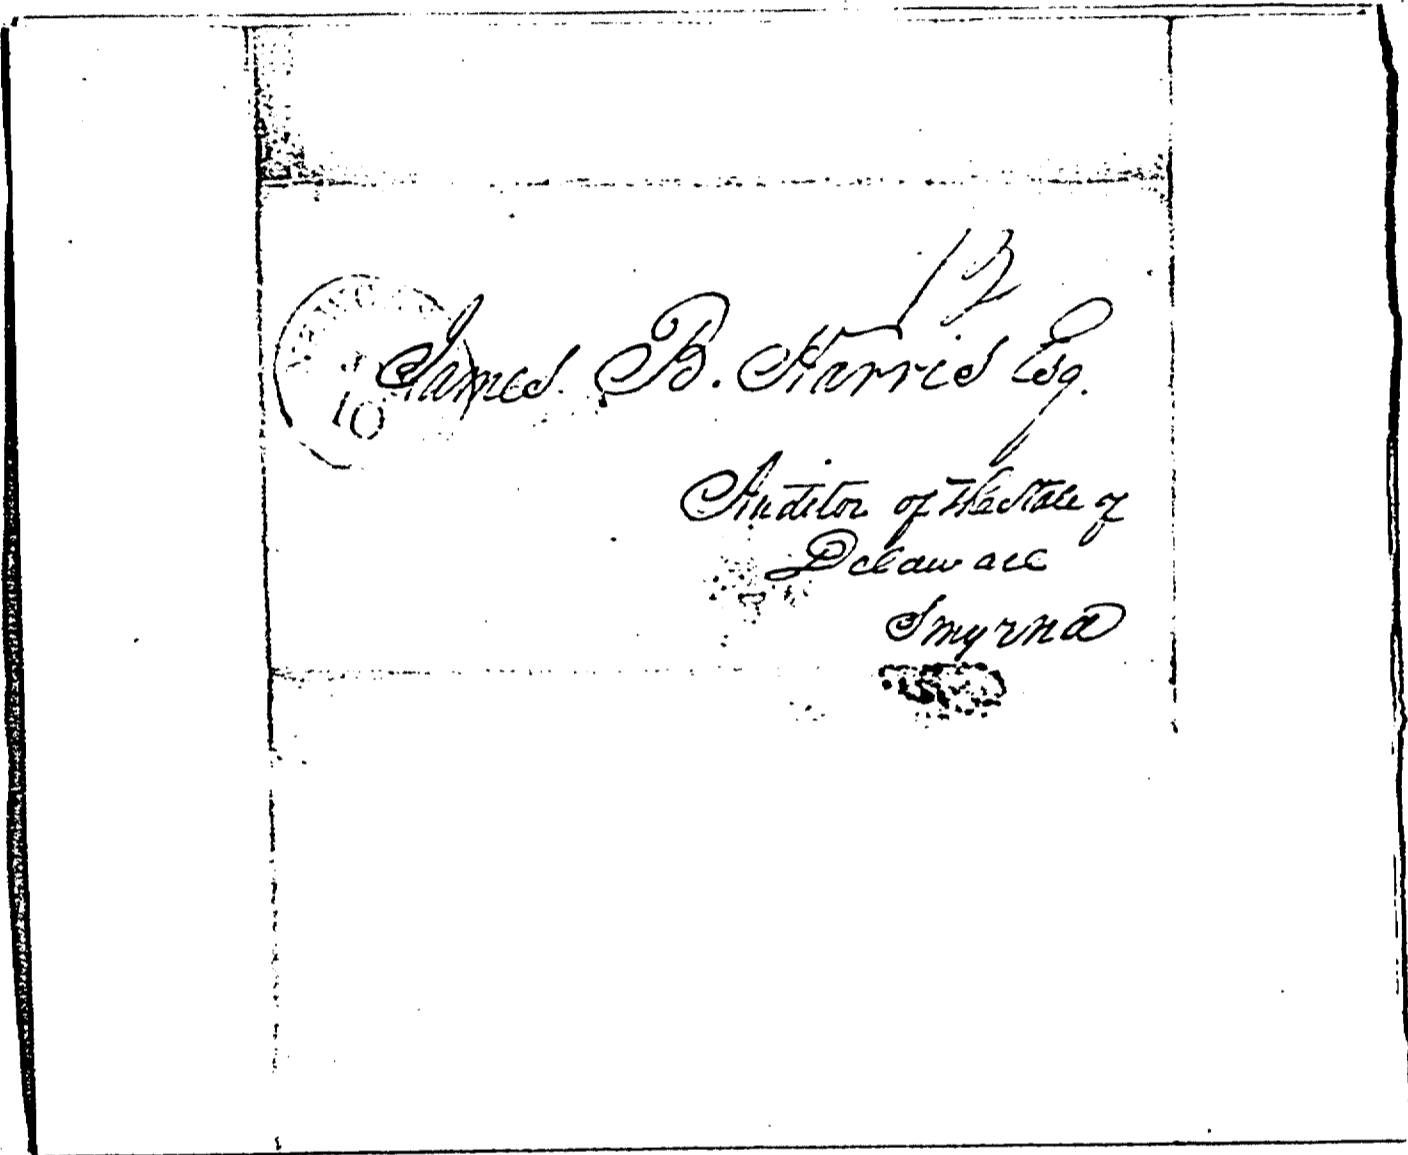 12
James B. Harris Esq.
10
Auditor of the State of
Delaware
Smyrna